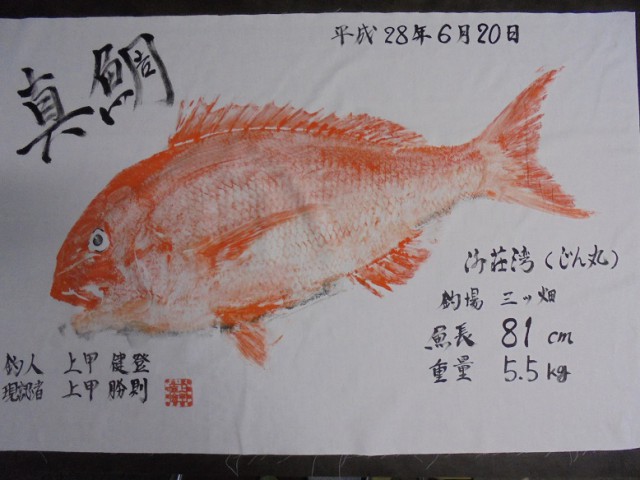 平成28年6月20日
真鯛
御荘湾(じん丸)
釣場 三ッ畑
魚長 81cm
重量 5.5kg
釣人 上甲 健登
現認者 上甲 勝則